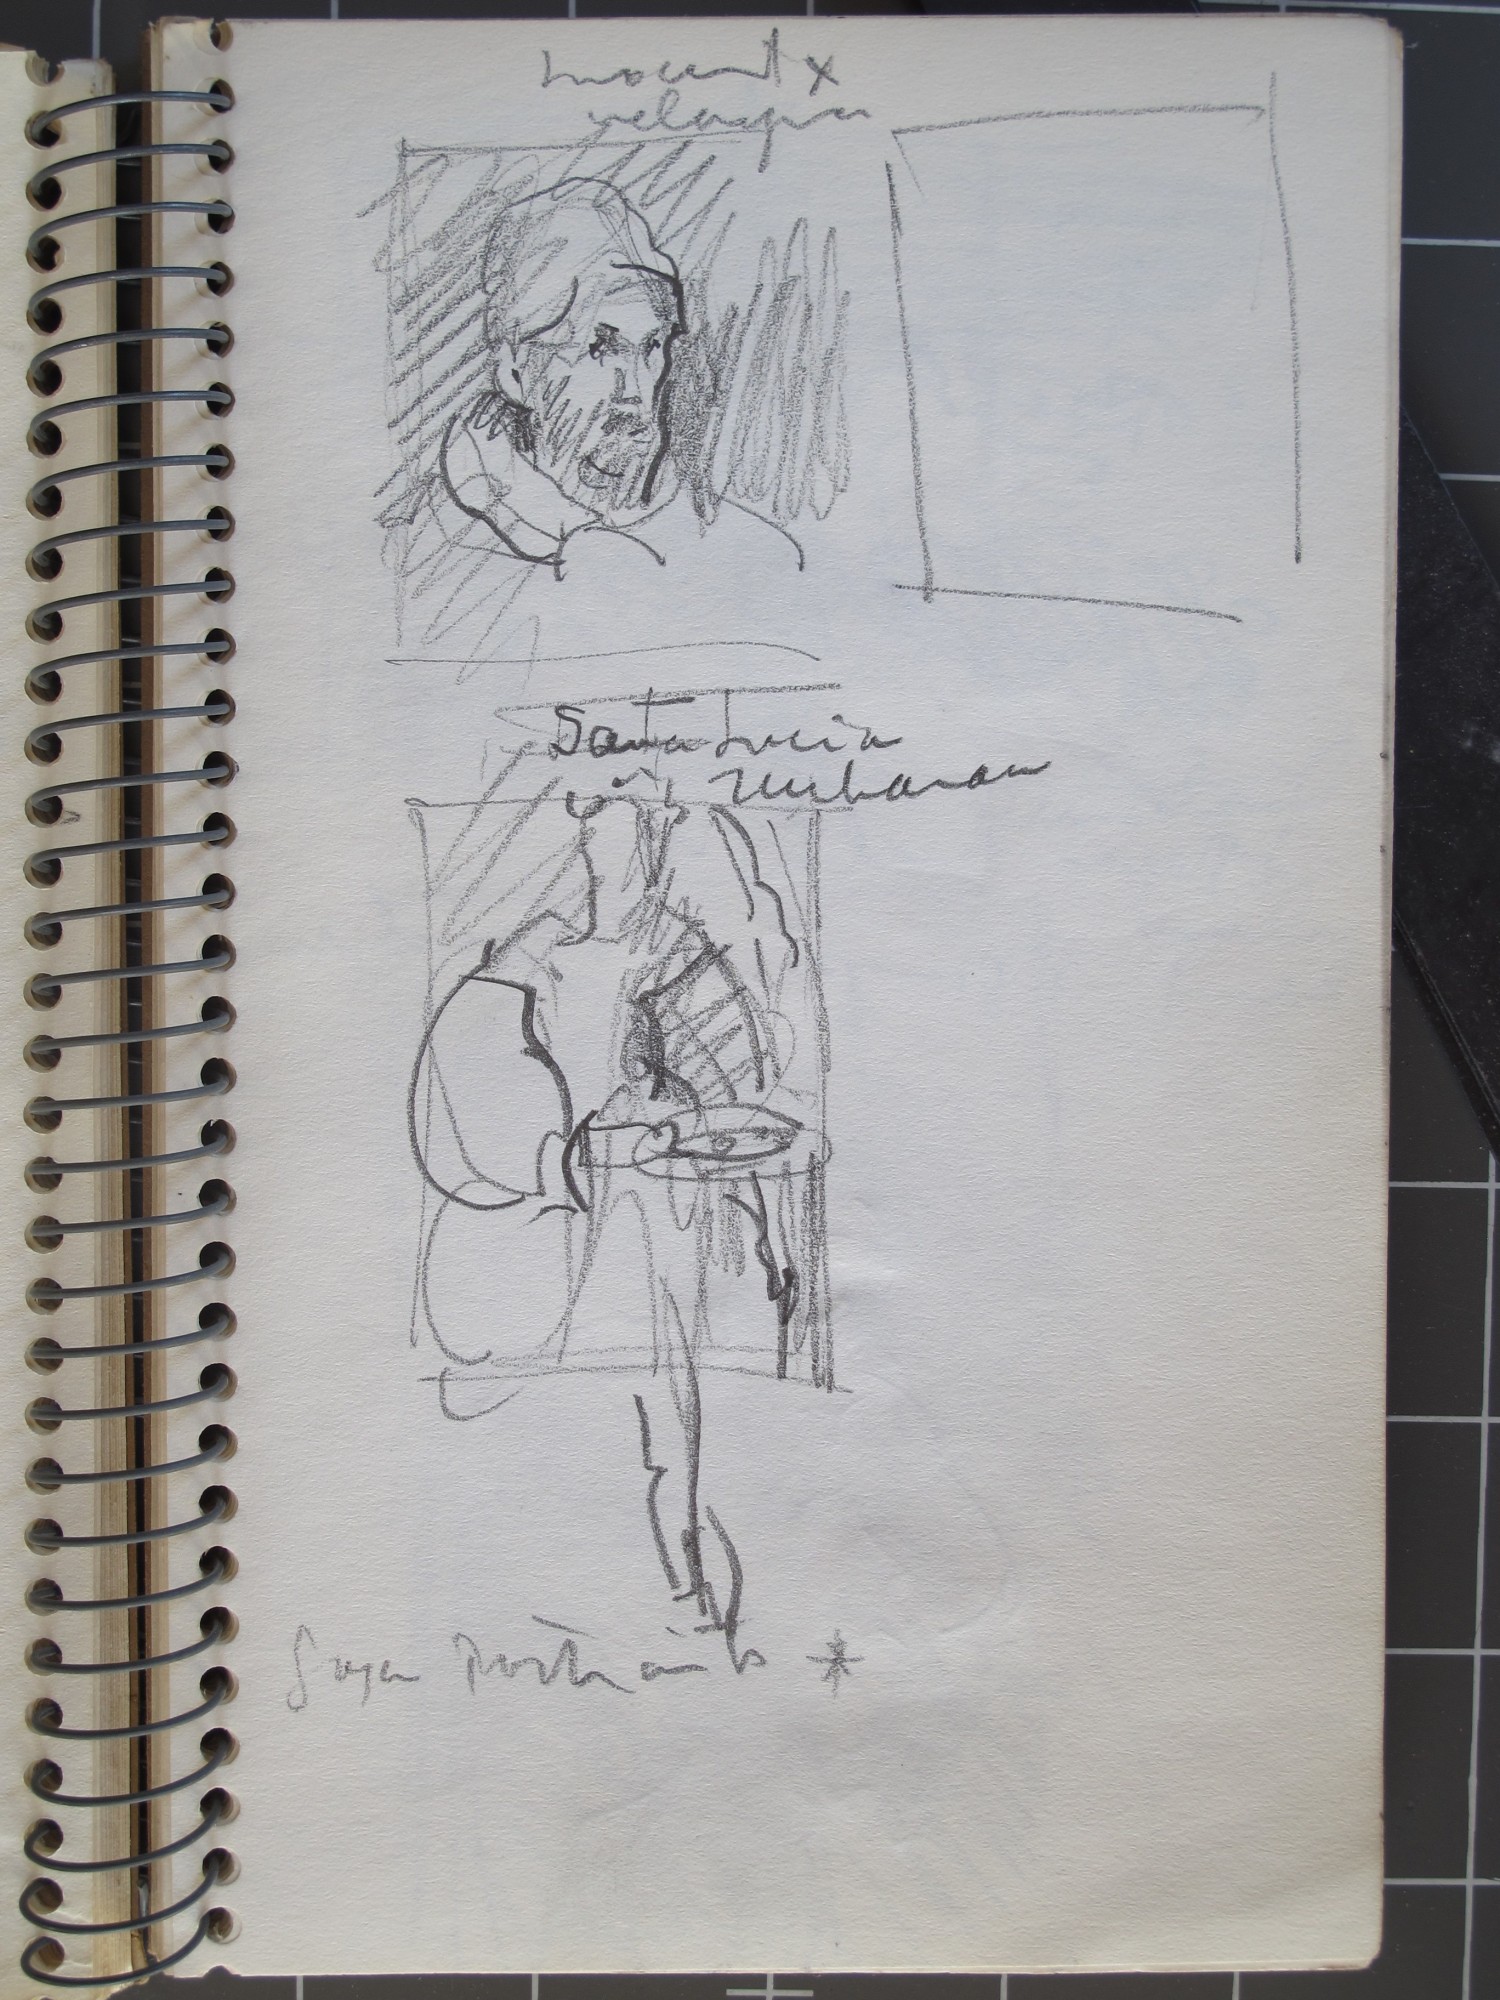 Inocent X
velasquez
Santa Lucia
Zurbaran
Goya Portraits *